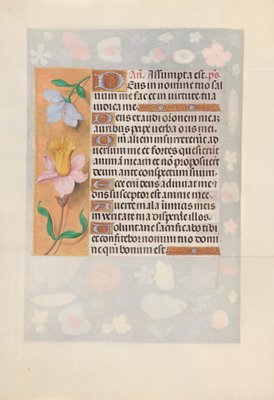 Añ. Assumpta est. ps̄
Deus in nomine tuo sal
uum me fac et in uirtute tua
iudica me.
Deus exaudi orōionem meaʒ
auribus ꝑcipe uerba oris mei.
Quō̄m alieni surrexerunt ad
uersum me et fortes quesierūt
animā meam et nō proposuerūt
deum ante conspectum suum.
Ecce enī deus adiuuat me et
dn̄s susceptor est anime mee.
Auerte mala inimicis meis
in ueritate tua disperde illos.
Voluntarie sacrificabo tibi
et confitebor nomini tuo domi
ne qm̄ bonum est.